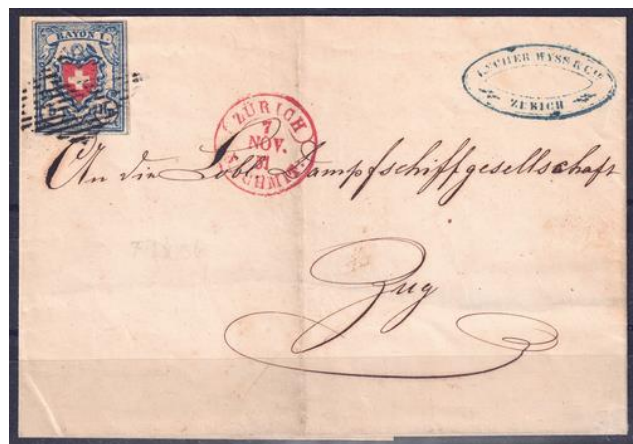 RAYON I.
ESCHER WYSS & Cie
ZÜRICH
ZÜRICH
7
NOV.
51
NACHMITT.
An die Löbl. Dampfschiffgesellschaft
Zug